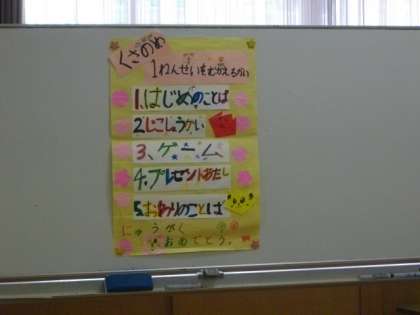 くさのめ
1ねんせいをむかえるかい
1.はじめのことば
2.じこしょうかい
3、ゲーム
4.プレゼントわたし
5.おわりのことば
にゅうがく
おめでとう。